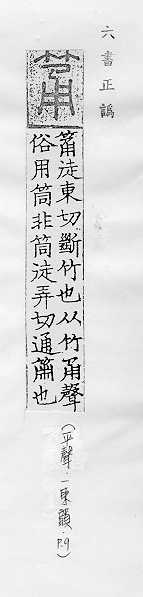 六書正譌
筩
筩徒東切斷竹也从竹甬聲
俗用筒非筒徒弄切通簫也
(平聲·一東韻·P.9)